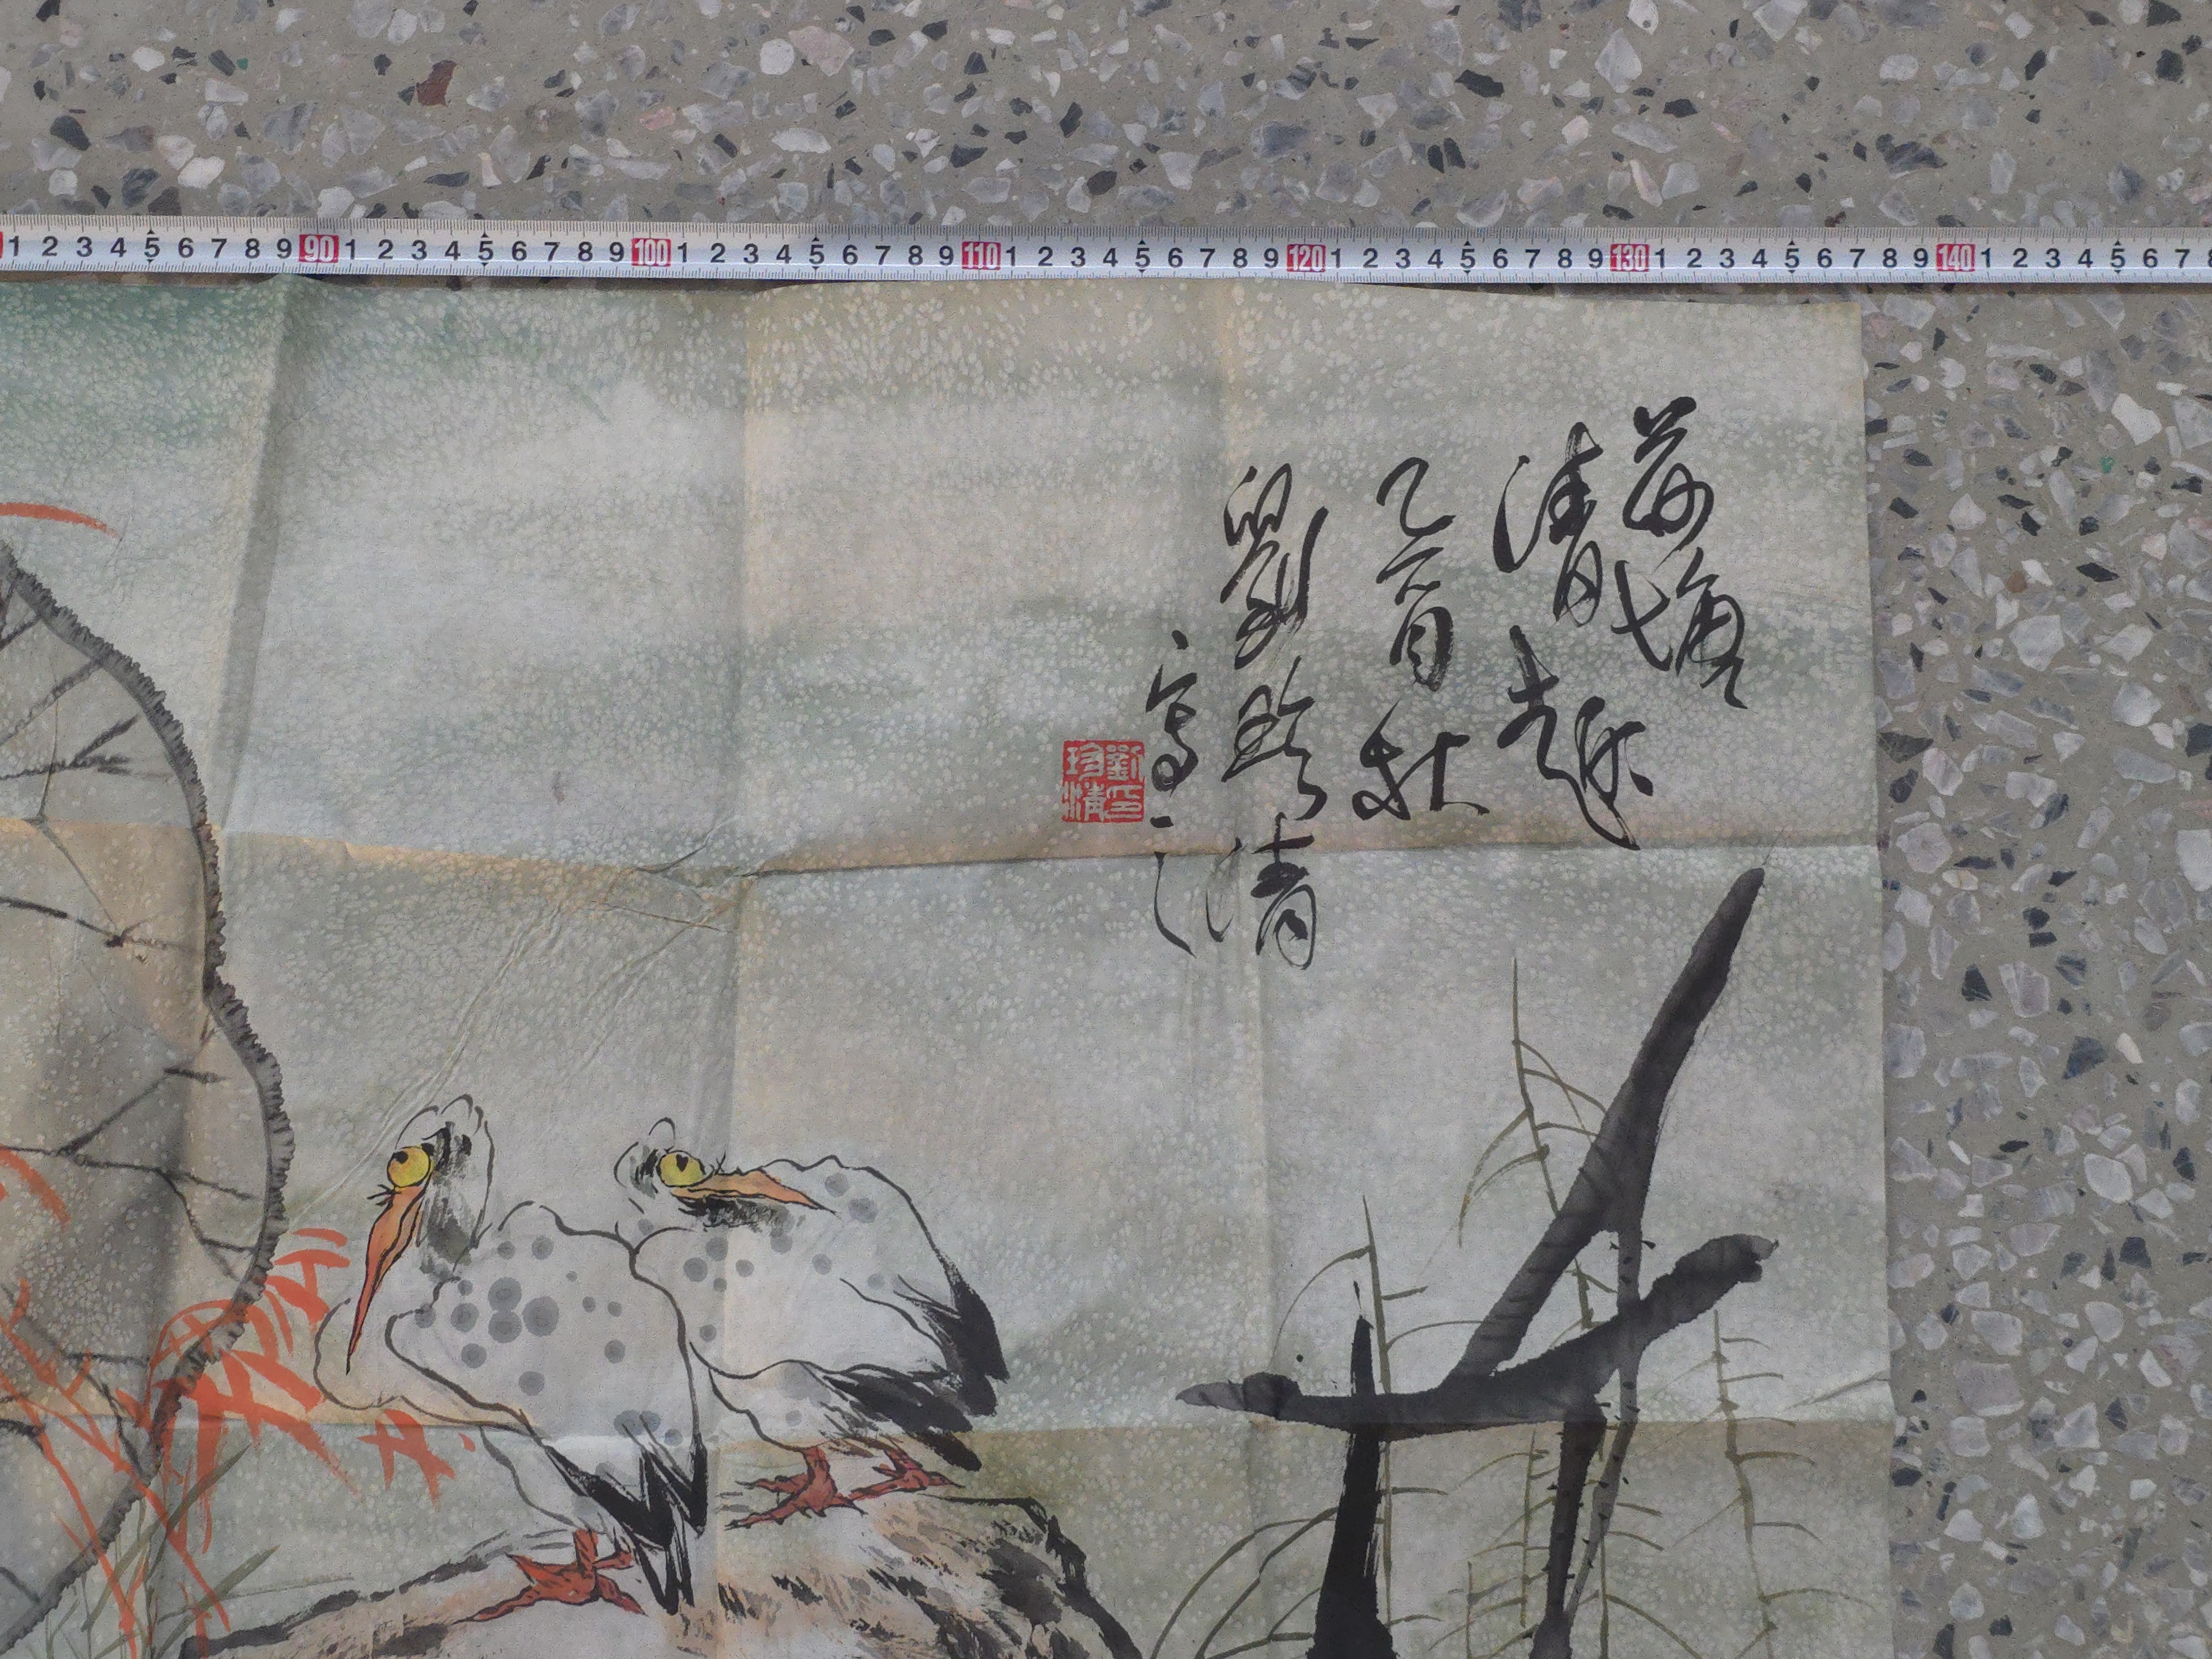 1 2 3 4 5 6 7 8 9 90 1 2 3 4 5 6 7 8 9 100 1 2 3 4 5 6 7 8 9 110 1 2 3 4 5 6 7 8 9 120 1 2 3 4 5 6 7 8 9 130 1 2 3 4 5 6 7 8 9 140 1 2 3 4 5 6 7
荷塘
清趣
乙酉秋
劉珍清
寫之
劉印
珍清